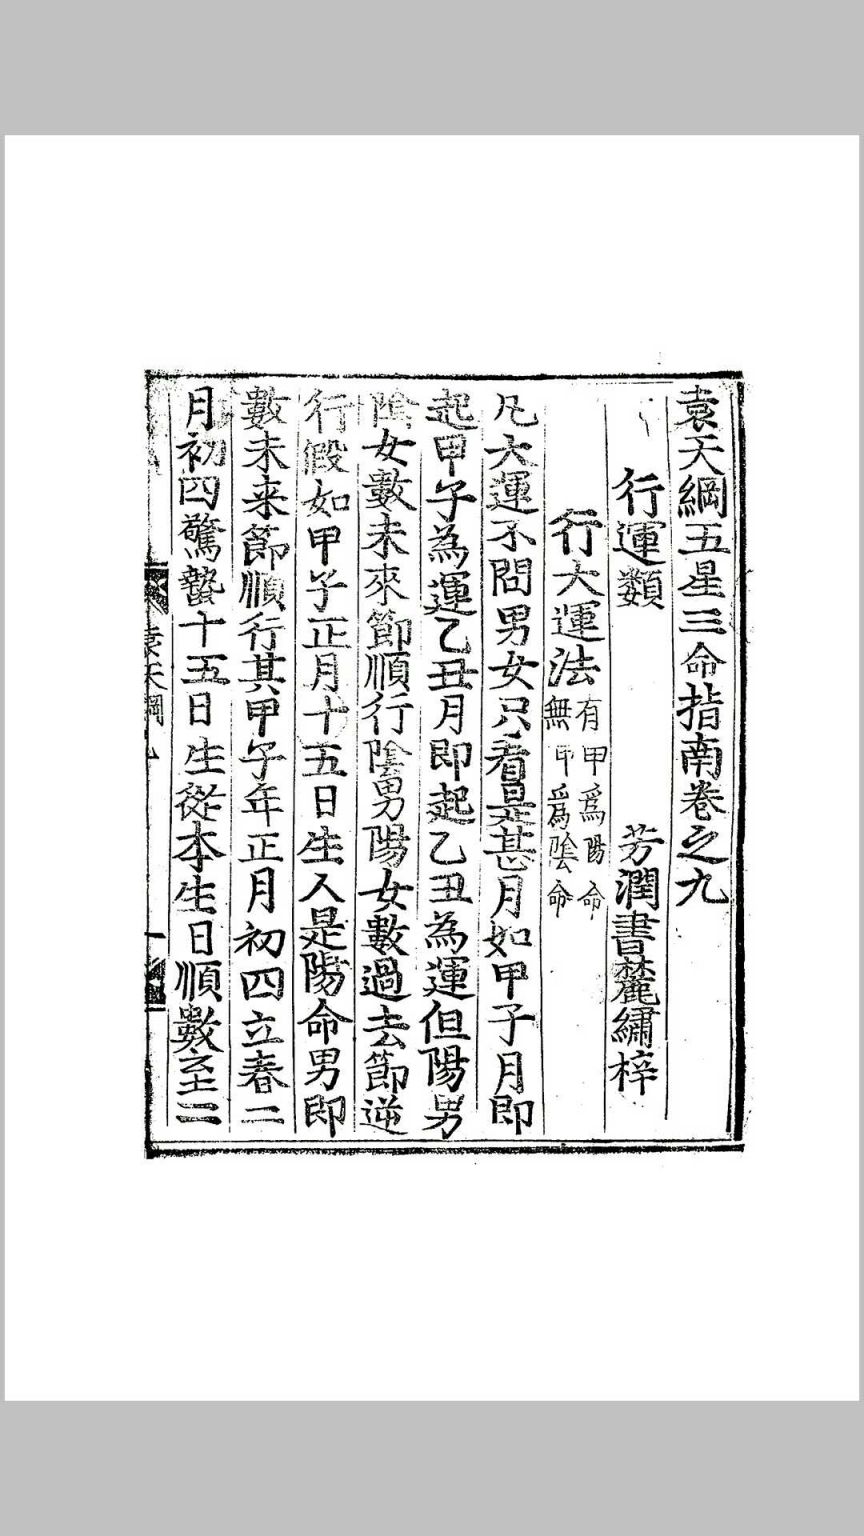 袁天綱五星三命指南卷之九
行運類　芳潤書麓繡梓
行大運法
有甲爲陽命
無甲爲陰命
凡大運不問男女只看是甚月如甲子月即
起甲子為運乙丑月即起乙丑為運但陽男
陰女數未來節順行陰男陽女數過去節逆
行假如甲子正月十五日生人是陽命男即
數未来節順行其甲子年正月初四立春二
月初四驚蟄十五日生從本生日順數至二
袁天綱九